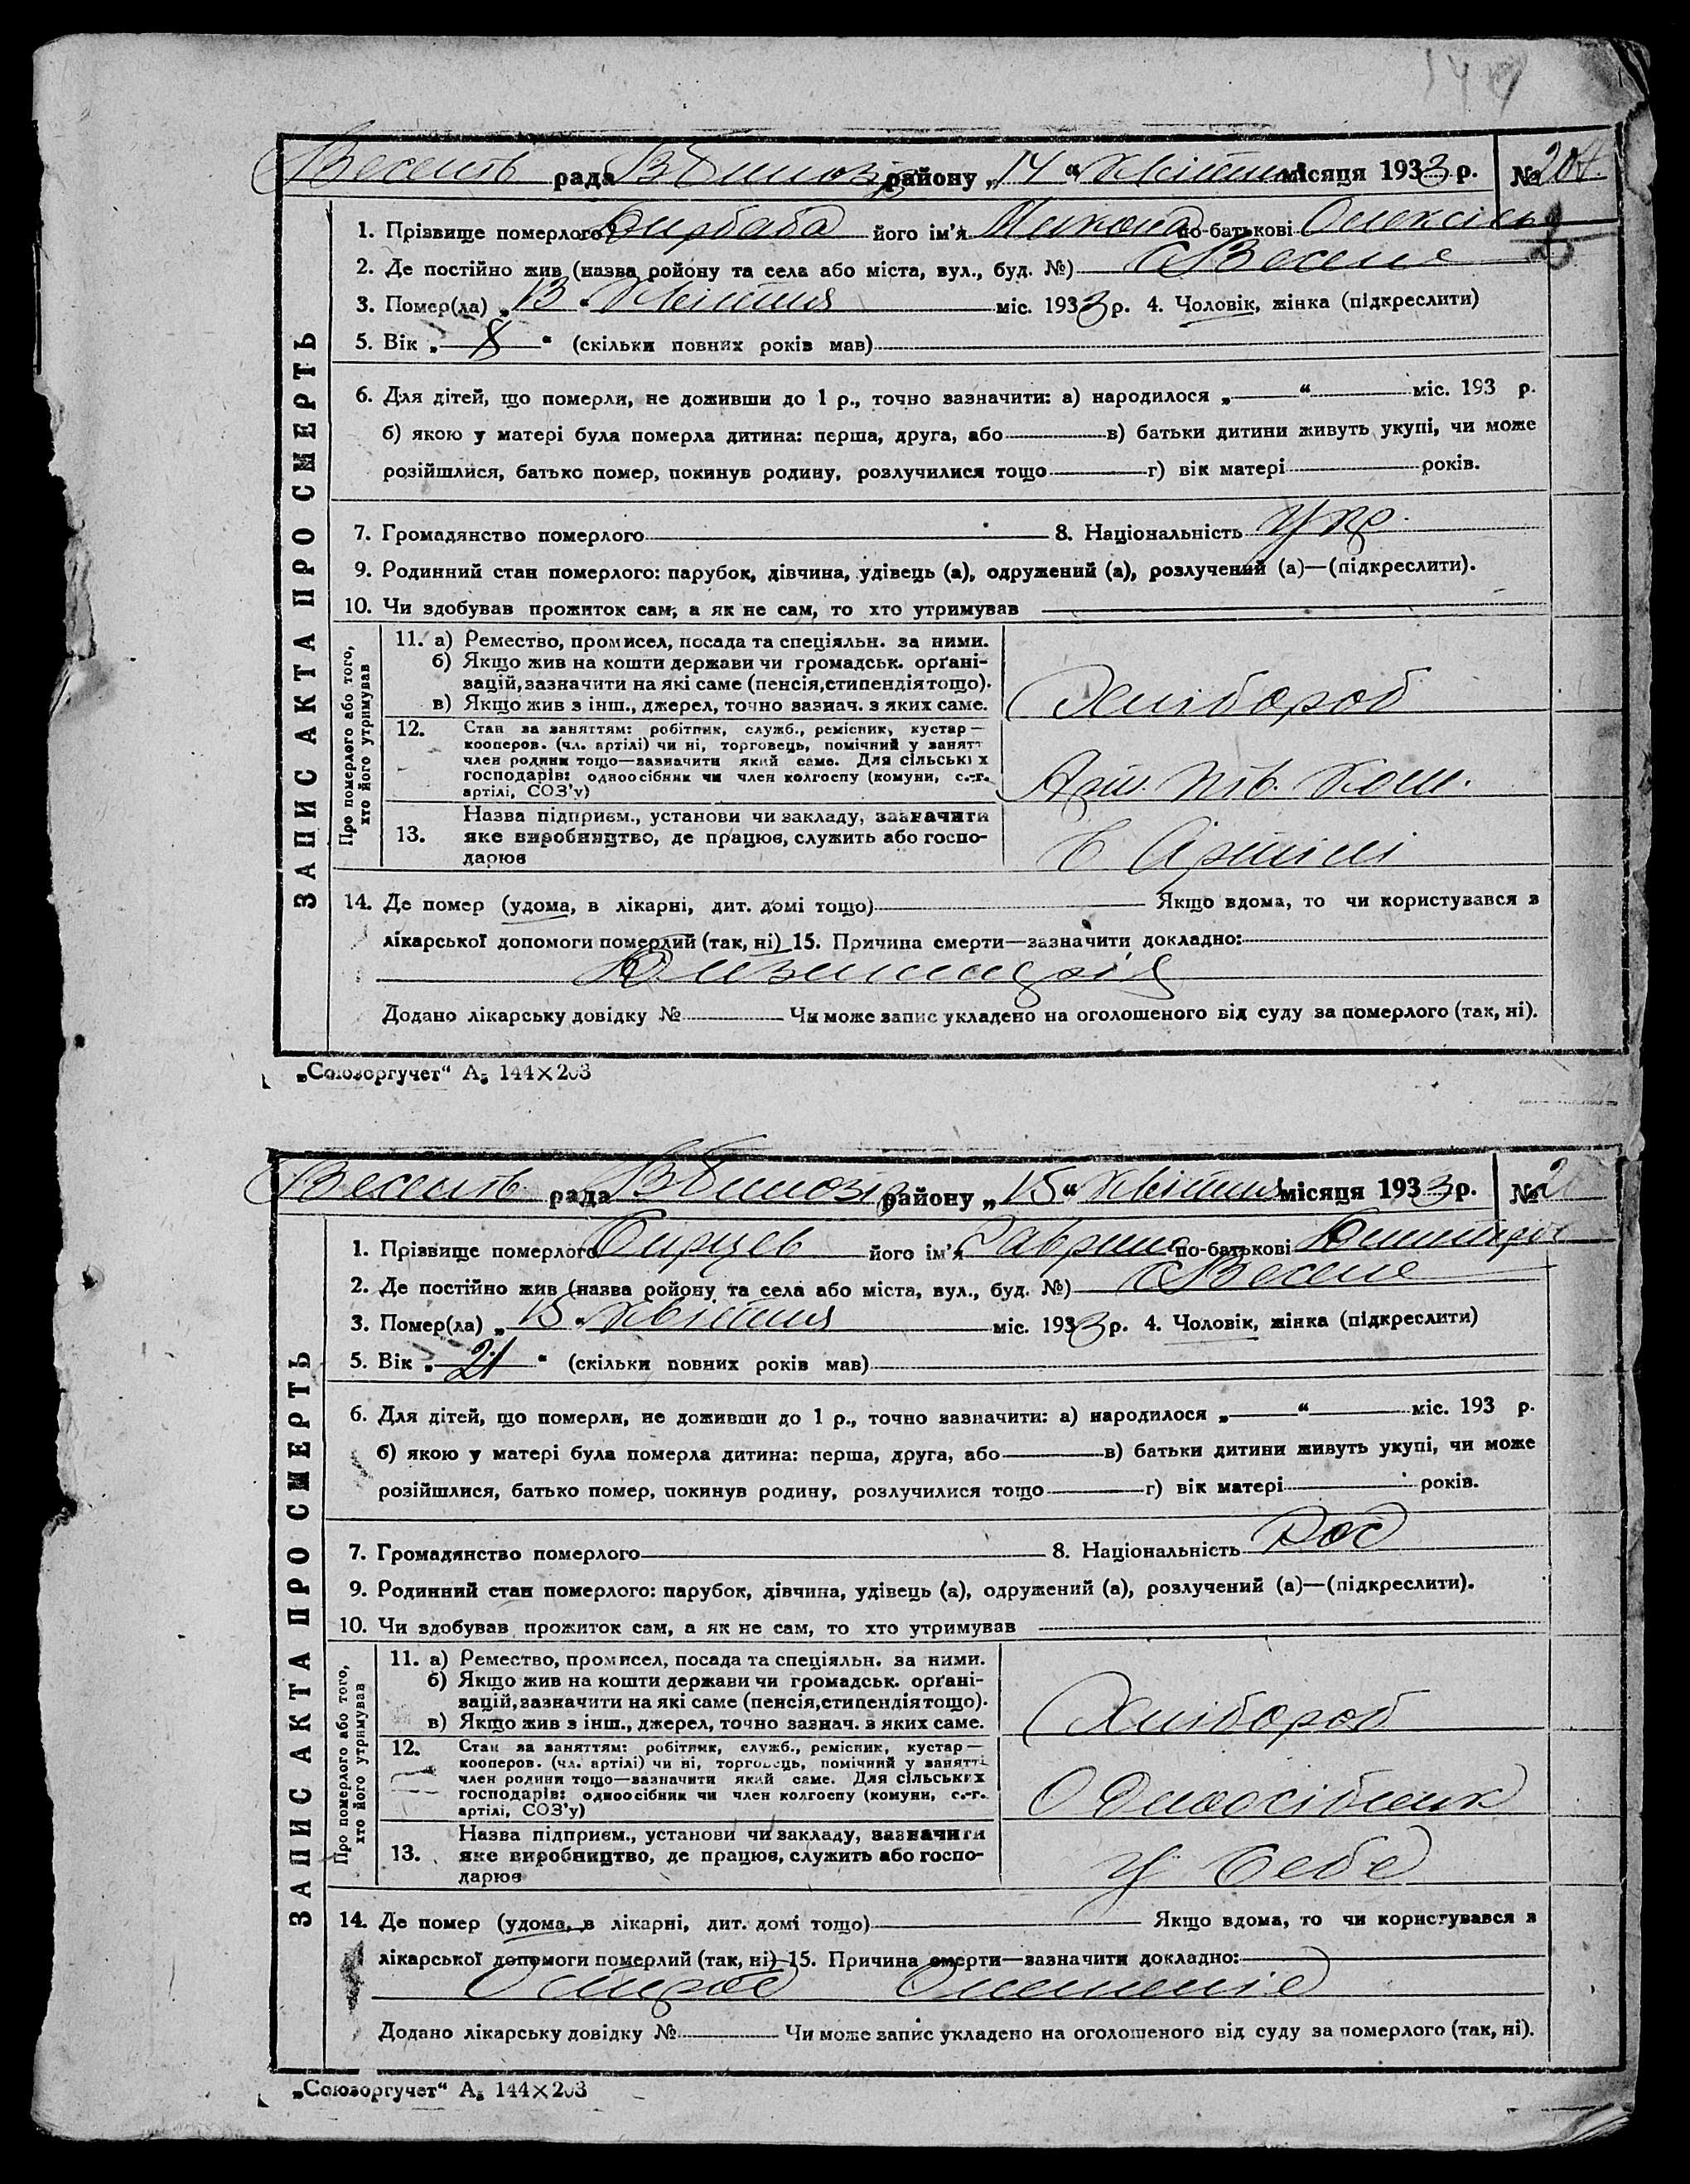 Веселів рада В Білозір району „14“ Квітня місяця 1933 р. № 204
1. Прізвище померлого Дирбаба його ім'я Микола по-батькові Олексієв
2. Де постійно жив (назва ройону та села або міста, вул., буд. №) с Веселе
3. Помер(ла) „13“ Квітня міс. 1933 р. 4. Чоловік, жінка (підкреслити)
5. Вік „8“ (скільки повних років мав)
6. Для дітей, що померли, не доживши до 1 р., точно зазначити: а) народилося „ “ міс. 193 р.
б) якою у матері була померла дитина: перша, друга, або в) батьки дитини живуть укупі, чи може
розійшлися, батько помер, покинув родину, розлучилися тощо г) вік матері років.
7. Громадянство померлого 8. Національність Укр.
9. Родинний стан померлого: парубок, дівчина, удівець (а), одружений (а), розлучений (а)—(підкреслити).
10. Чи здобував прожиток сам, а як не сам, то хто утримував
ЗАПИС АКТА ПРО СМЕРТЬ
Про померлого або того, хто його утримував
11. а) Ремество, промисел, посада та спеціяльн. за ними.
б) Якщо жив на кошти держави чи громадськ. орґані-
зацій, зазначити на які саме (пенсія, стипендія тощо).
в) Якщо жив з інш., джерел, точно зазнач. з яких саме.
Хлібороб
12. Стан за заняттям: робітник, служб., ремісник, кустар—
кооперов. (чл. артілі) чи ні, торговець, помічний у занятт
член родини тощо—зазначити який саме. Для сільських
господарів: одноосібник чи член колгоспу (комуни, с.-г.
артілі, СОЗ'у)
Арт.
13. Назва підприєм., установи чи закладу, зазначити
яке виробництво, де працює, служить або госпо-
дарює
в Артілі
14. Де помер (удома, в лікарні, дит. домі тощо) Якщо вдома, то чи користувався з
лікарської допомоги померлий (так, ні) 15. Причина смерти—зазначити докладно:
Дизинтрія
Додано лікарську довідку № Чи може запис укладено на оголошеного від суду за померлого (так, ні).
„Союзоргучет“ А5 144×203
Веселів рада В Білозір району „15“ Квітня місяця 1933 р. № 2
1. Прізвище померлого Бирцев його ім'я Гаврило по-батькові Дмитров
2. Де постійно жив (назва ройону та села або міста, вул., буд. №) с Веселе
3. Помер(ла) „15“ Квітня міс. 1933 р. 4. Чоловік, жінка (підкреслити)
5. Вік „21“ (скільки повних років мав)
6. Для дітей, що померли, не доживши до 1 р., точно зазначити: а) народилося „ “ міс. 193 р.
б) якою у матері була померла дитина: перша, друга, або в) батьки дитини живуть укупі, чи може
розійшлися, батько помер, покинув родину, розлучилися тощо г) вік матері років.
7. Громадянство померлого 8. Національність Рос
9. Родинний стан померлого: парубок, дівчина, удівець (а), одружений (а), розлучений (а)—(підкреслити).
10. Чи здобував прожиток сам, а як не сам, то хто утримував
ЗАПИС АКТА ПРО СМЕРТЬ
Про померлого або того, хто його утримував
11. а) Ремество, промисел, посада та спеціяльн. за ними.
б) Якщо жив на кошти держави чи громадськ. орґані-
зацій, зазначити на які саме (пенсія, стипендія тощо).
в) Якщо жив з інш., джерел, точно зазнач. з яких саме.
Хлібороб
12. Стан за заняттям: робітник, служб., ремісник, кустар—
кооперов. (чл. артілі) чи ні, торговець, помічний у занятті
член родини тощо—зазначити який саме. Для сільських
господарів: одноосібник чи член колгоспу (комуни, с.-г.
артілі, СОЗ'у)
Одноосібник
13. Назва підприєм., установи чи закладу, зазначити
яке виробництво, де працює, служить або госпо-
дарює
у себе
14. Де помер (удома, в лікарні, дит. домі тощо) Якщо вдома, то чи користувався з
лікарської допомоги померлий (так, ні) 15. Причина смерти—зазначити докладно:
Острое
Додано лікарську довідку № Чи може запис укладено на оголошеного від суду за померлого (так, ні).
„Союзоргучет“ А5 144×203